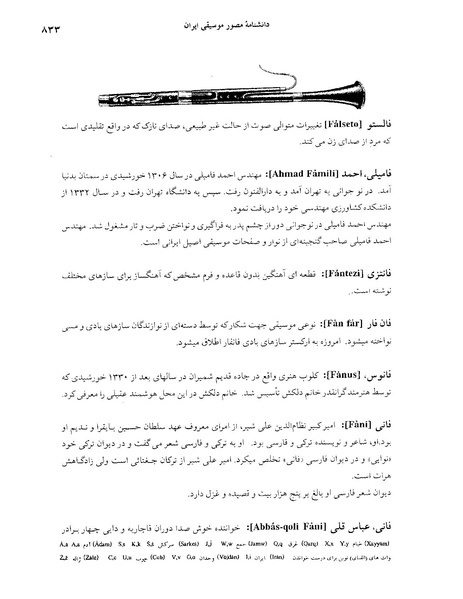 دانشنامهٔ مصور موسیقی ایران
۸۳۳
فالستو [Fâlseto] تغییرات متوالی صوت از حالت غیر طبیعی، صدای نازک که در واقع تقلیدی است
که مرد از صدای زن می‌کند.
فامیلی، احمد [Ahmad Fâmili]: مهندس احمد فامیلی در سال ۱۳۰۶ خورشیدی در سمنان بدنیا
آمد. در نو جوانی به تهران آمد و به دارالفنون رفت. سپس به دانشگاه تهران رفت و در سال ۱۳۳۲ از
دانشکده کشاورزی مهندسی خود را دریافت نمود.
مهندس احمد فامیلی در نوجوانی دور از چشم پدر به فراگیری و نواختن ضرب و تار مشغول شد. مهندس
احمد فامیلی صاحب گنجینه‌ای از نوار و صفحات موسیقی اصیل ایرانی است.
فانتزی [Fântezi]: قطعه ای آهنگین بدون قاعده و فرم مشخص که آهنگساز برای سازهای مختلف
نوشته است.
فان فار [Fân fâr]: نوعی موسیقی جهت شکار که توسط دسته‌ای از نوازندگان سازهای بادی و مسی
نواخته میشود. امروزه به ارکستر سازهای بادی فانفار اطلاق میشود.
فانوس، [Fânus]: کلوب هنری واقع در جاده قدیم شمیران در سالهای بعد از ۱۳۳۰ خورشیدی که
توسط هنرمند گرانقدر خانم دلکش تأسیس شد. خانم دلکش در این محل هوشمند عقیلی را معرفی کرد.
فانی [Fâni]: امیر کبیر نظام‌الدین علی شیر، از امرای معروف عهد سلطان حسین بایقرا و ندیم او
بود.او، شاعر و نویسنده ترکی و فارسی بود. او به ترکی و فارسی شعر می‌گفت و در دیوان ترکی خود
«نوایی» و در دیوان فارسی «فانی» تخلص میکرد. امیر علی شیر از ترکان جغتائی است ولی زادگاهش
هرات است.
دیوان شعر فارسی او بالغ بر پنج هزار بیت و قصیده و غزل دارد.
فانی، عباس قلی [Abbâs-qoli Fâni]: خواننده خوش صدا دوران قاجاریه و دایی چهار برادر
وات های (الفبای) نوس برای درست خواندن